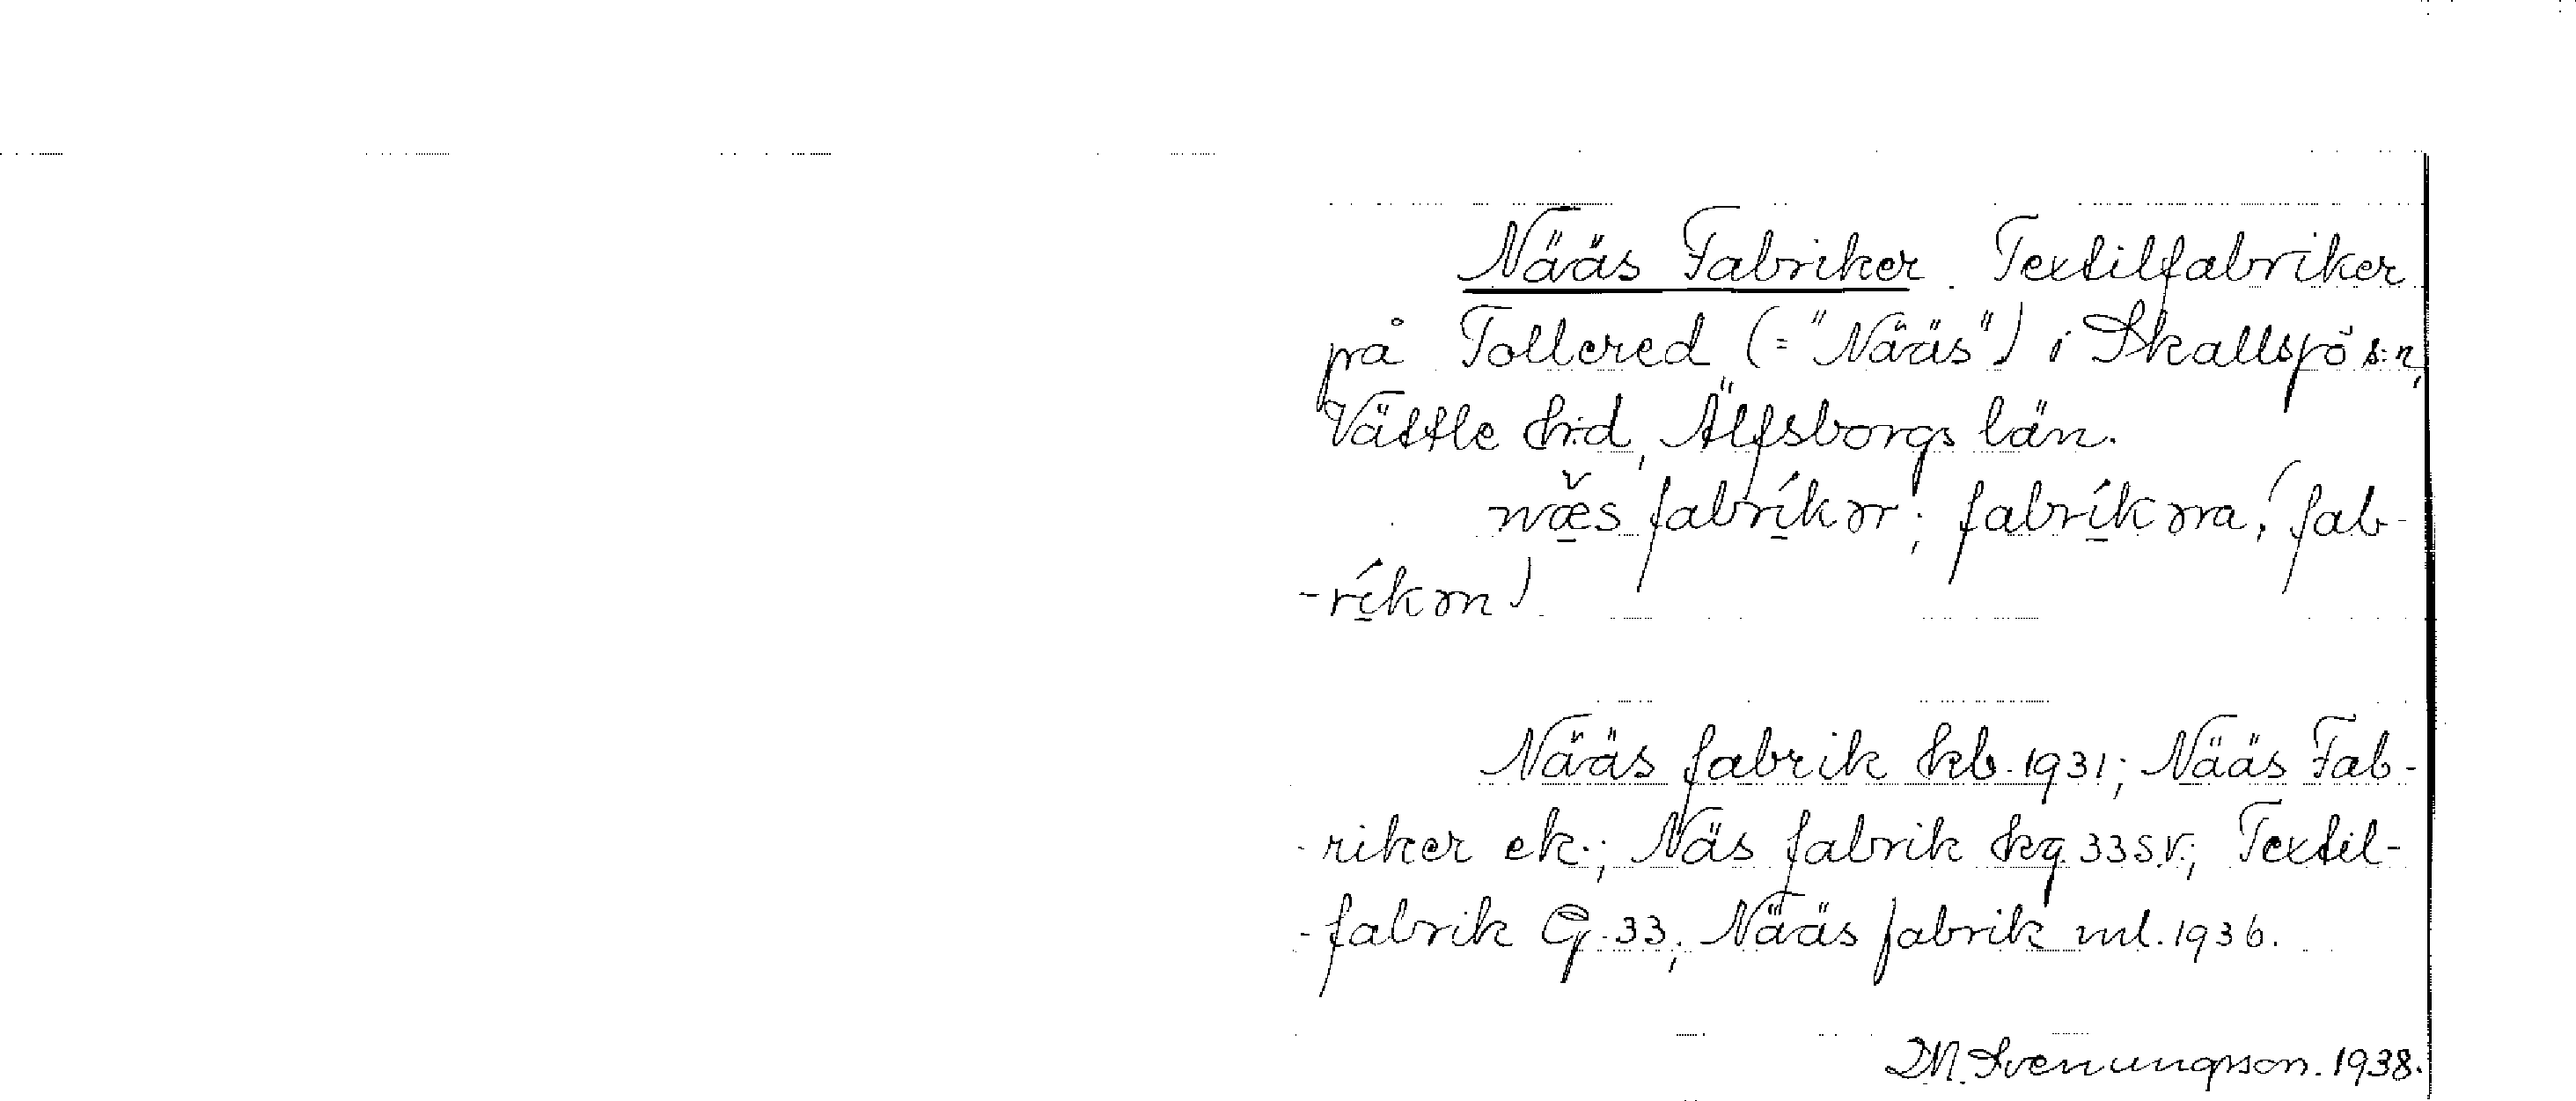 Nääs Fabriker. Textilfabriker
på Tollered (="Nääs") i Skallsjö s:n,
Vättle h:d, Älfsborgs län.
næ̌s fabríkər; fabríkəra, (fab-
-ríkən).
Nääs fabrik kb. 1931; Nääs Fab-
-riker ek.; Näs fabrik kg. 33 S.V.; Textil-
-fabrik G. 33; Nääs fabrik ml. 1936.
D.N. Svenungson. 1938.